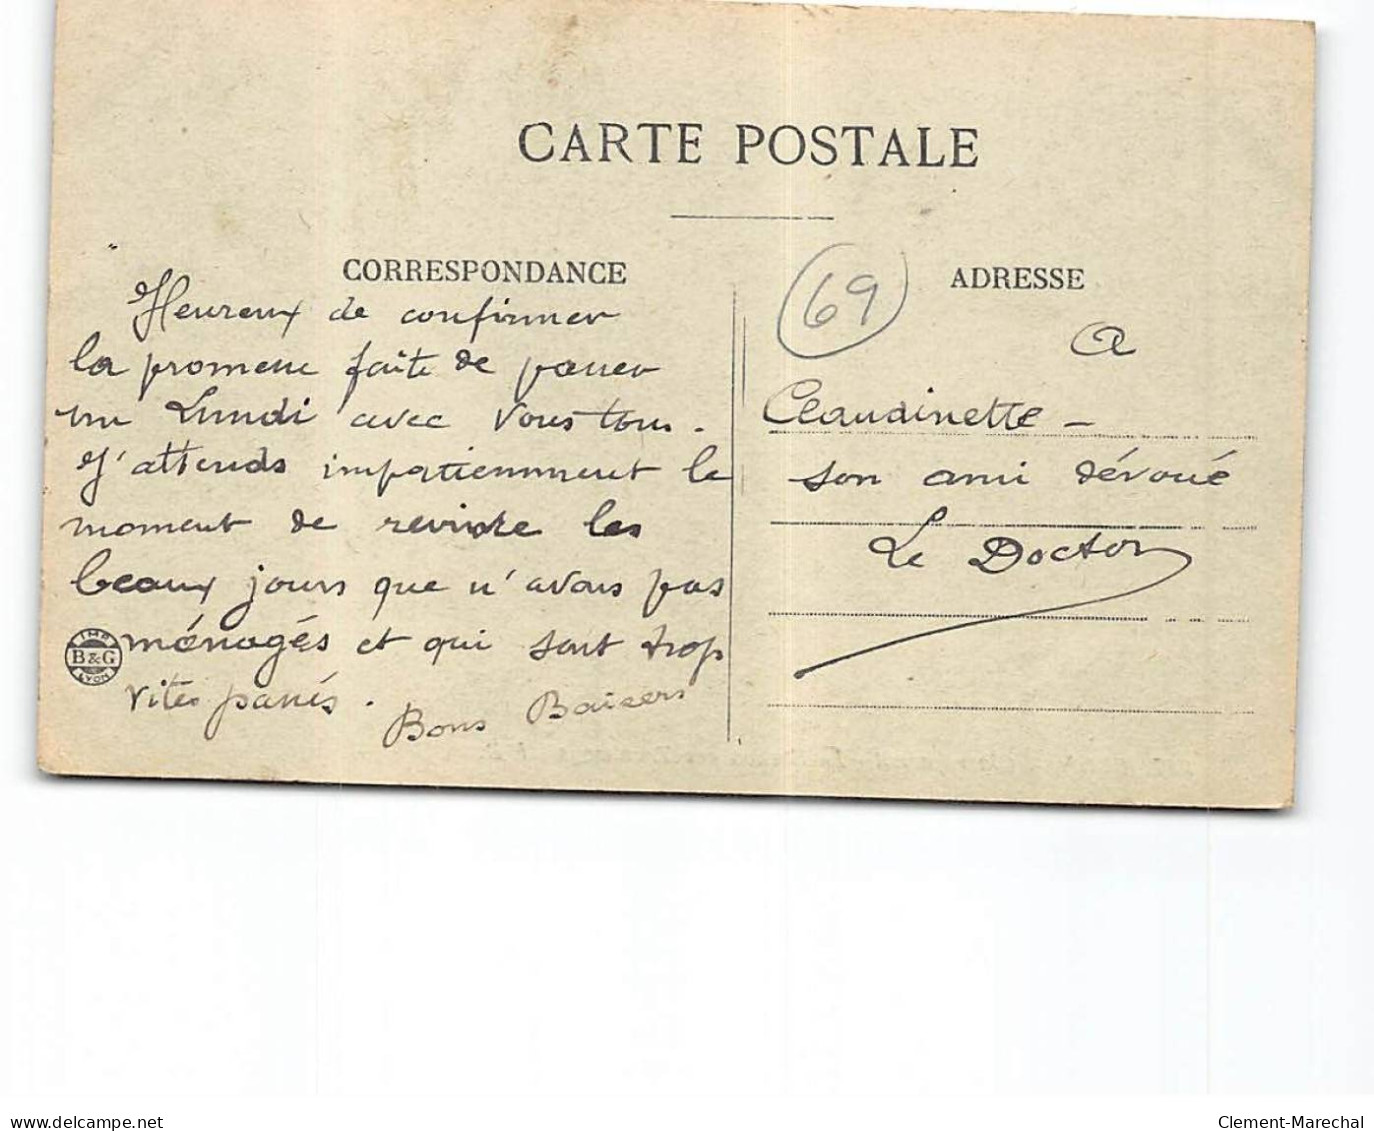 CARTE POSTALE
CORRESPONDANCE
Heureux de confirmer
la promesse faite de passer
un Lundi avec vous tous.
J'attends impatiemment le
moment de revivre les
beaux jours que n'avons pas
ménagés et qui sont trop
vites passés.
Bons Baisers
IMP.
B & G
LYON
69
ADRESSE
A
Claudinette -
son ami dévoué
Le Doctor
delcampe.net
Clement-Marechal